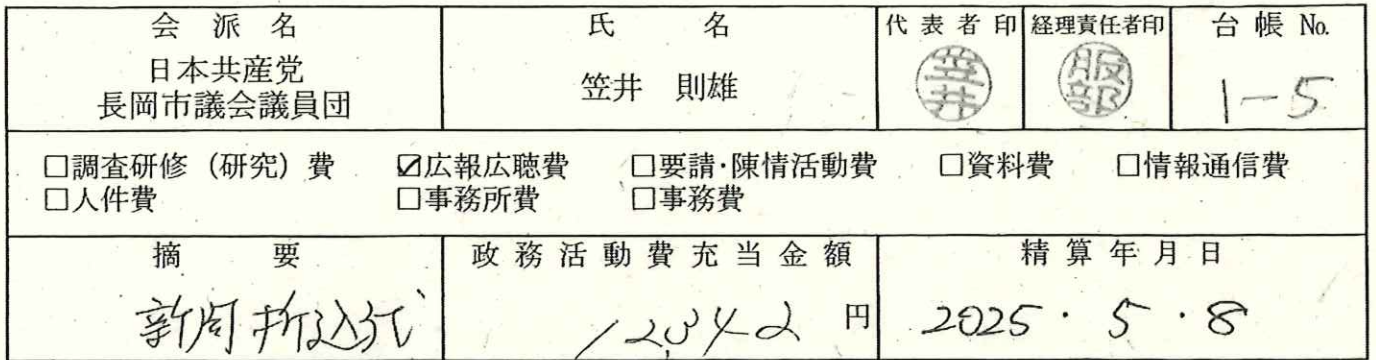 会派名 氏名 代表者印 経理責任者印 台帳 No.
日本共産党
長岡市議会議員団
笠井 則雄
笠井
服部
1-5
□調査研修（研究）費 ☑広報広聴費 □要請・陳情活動費 □資料費 □情報通信費
□人件費 □事務所費 □事務費
摘要 政務活動費充当金額 精算年月日
新聞折込代 12,342 円 2025・5・8